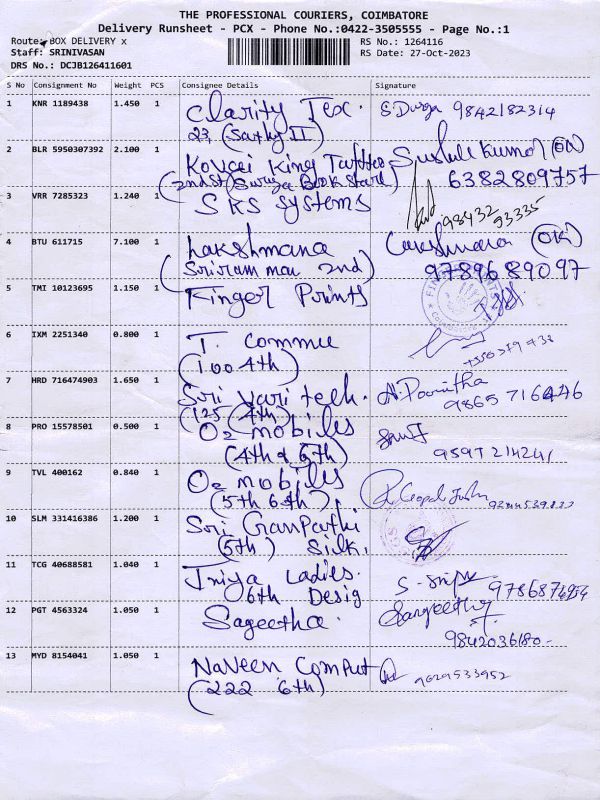 THE PROFESSIONAL COURIERS, COIMBATORE
Delivery Runsheet - PCX - Phone No.:0422-3505555 - Page No.:1
Route: BOX DELIVERY x
RS No.: 1264116
Staff: SRINIVASAN
RS Date: 27-Oct-2023
DRS No.: DCJB126411601
S No Consignment No Weight PCS Consignee Details Signature
1 KNR 1189438 1.450 1 Clarity Tex. S. Durga 9842182314
23, (Sathy II)
2 BLR 5950307392 2.100 1 Kovai King
6382809757
(2nd St) Surya Book Stall)
3 VRR 7285323 1.240 1 SKS Systems
98432 93335
4 BTU 611715 7.100 1 Lakshmana (OK)
(Sriram mau 2nd) 9789689097
5 TMI 10123695 1.150 1 Finger Prints
6 IXM 2251340 0.800 1 T. Commu
(100 4th)
7 HRD 716474903 1.650 1 Sri Vari tech.
(125 (4th)
8 PRO 15578501 0.500 1 O2 mobiles
(4th & 6th) 9597214241
9 TVL 400162 0.840 1 O2 mobiles
(5th 6th)
10 SLM 331416386 1.200 1 Sri Ganpathi
(5th) Silk.
11 TCG 40688581 1.040 1 Ladies.
6th Desig
12 PGT 4563324 1.050 1 Sageetha. Sangeetha
9842036180-
13 MYD 8154041 1.050 1 Naveen Comput 9629533952
(222 6th)